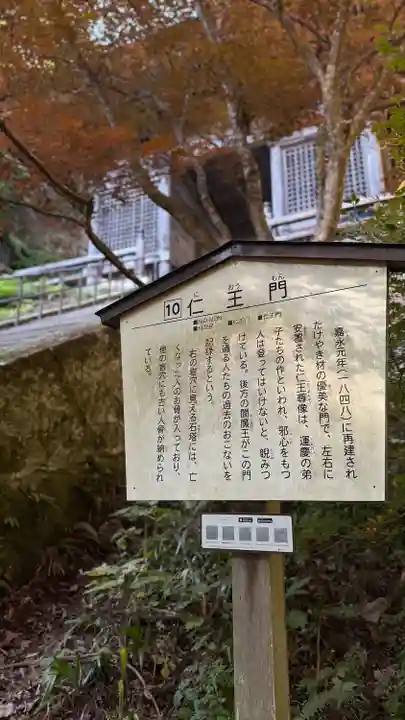 10 仁王門
に おう もん
嘉永元年(一八四八)に再建され
たけやき材の優美な門で、左右に
安置された仁王尊像は、運慶の弟
子たちの作といわれ、邪心をもつ
人は登ってはいけないと、睨みつ
けている。後方の閻魔王がこの門
を通る人たちの過去のおこないを
記録するという。
右の岩穴に見える石塔には、亡
くなった人のお骨が入っており、
他の岩穴にも古い人骨が納められ
ている。